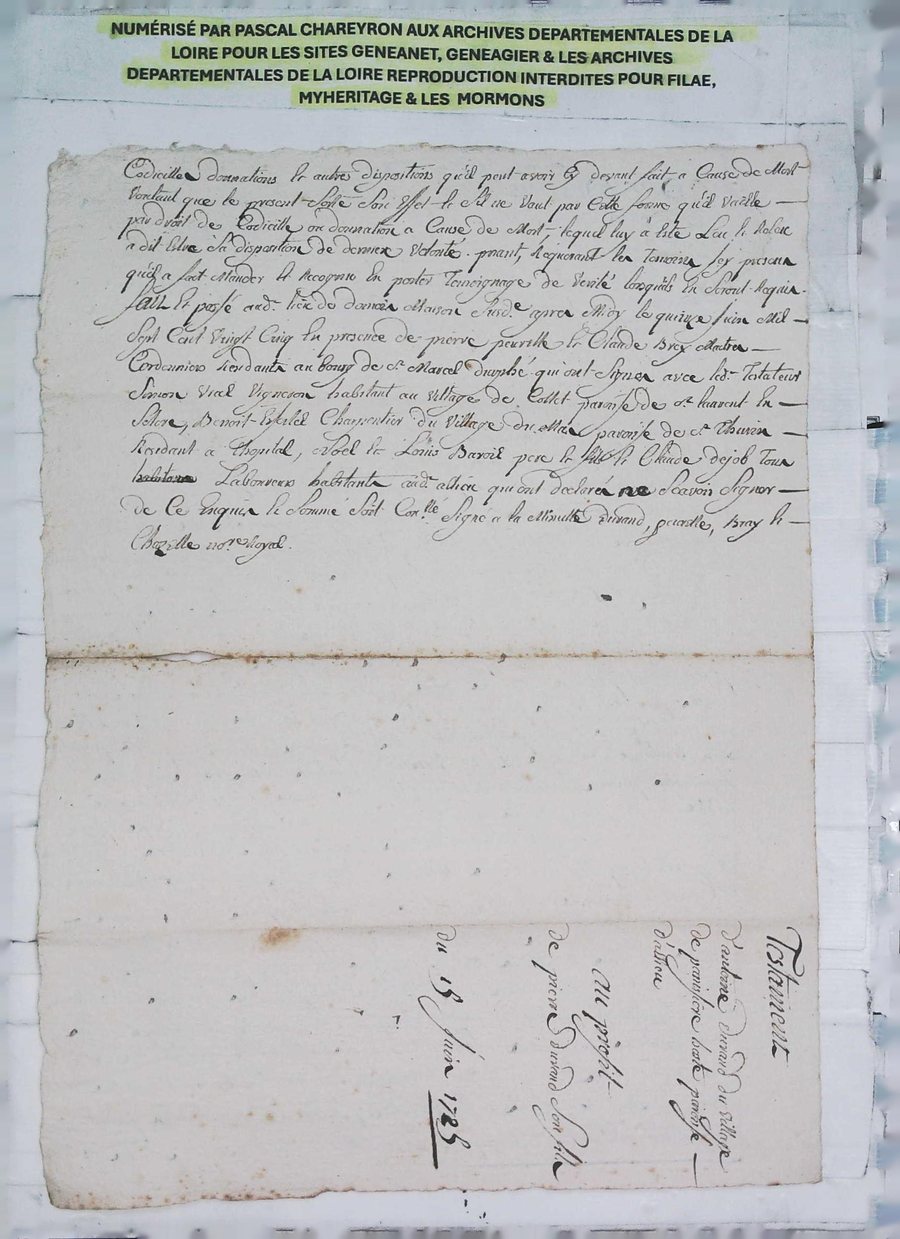 NUMÉRISÉ PAR PASCAL CHAREYRON AUX ARCHIVES DEPARTEMENTALES DE LA
LOIRE POUR LES SITES GENEANET, GENEAGIER & LES ARCHIVES
DEPARTEMENTALES DE LA LOIRE REPRODUCTION INTERDITES POUR FILAE,
MYHERITAGE & LES MORMONS
Codicilles donnations et autre dispositions qu'il peut avoir cy devant fait a Cause de Mort
Voulant que le present sorte son Effet et s'il ne Vaut par Cette forme qu'il Vaille
par droit de Codicille ou donnation a Cause de Mort lequel luy a Este Leu et Releu
a dit Estre sa disposition de derniere Volonté. priant, Requerant les Temoins icy presens
qu'il a fait Mander et Recognus En porter Temoignage de Verité lorsquils En seront Requis.
fait et passé aud. lieu de Maison Susd.e apres Midy le quinze juin Mil
Sept Cent Vingt Cinq En presence de pierre peurelle et Claude Bray Maitres
Cordonniers Residants au bourg de St. Marcel durphé qui ont Signes avec led. Testateur
Simon Vial Vigneron habitant au Village de Collet paroisse de St. laurent En
Solore, Benoit Charpentier du Village du Mas paroisse de St. Thurin
Residant a l'hopital, Noel et Louis Baroil pere et fils et Claude dejob Tous
Laboureurs habitants aud. allieu qui ont declarés ne Scavoir Signer
de Ce Enquis et Sommé Soit Con.llé Signé a la Minutte Durand, peurelle, Bray et
Chazelle no.re Royal.
Testament
d'antoine durand du village
de paroisse
d'allieu
au profit
de pierre durand son fils
du 15 juin 1725